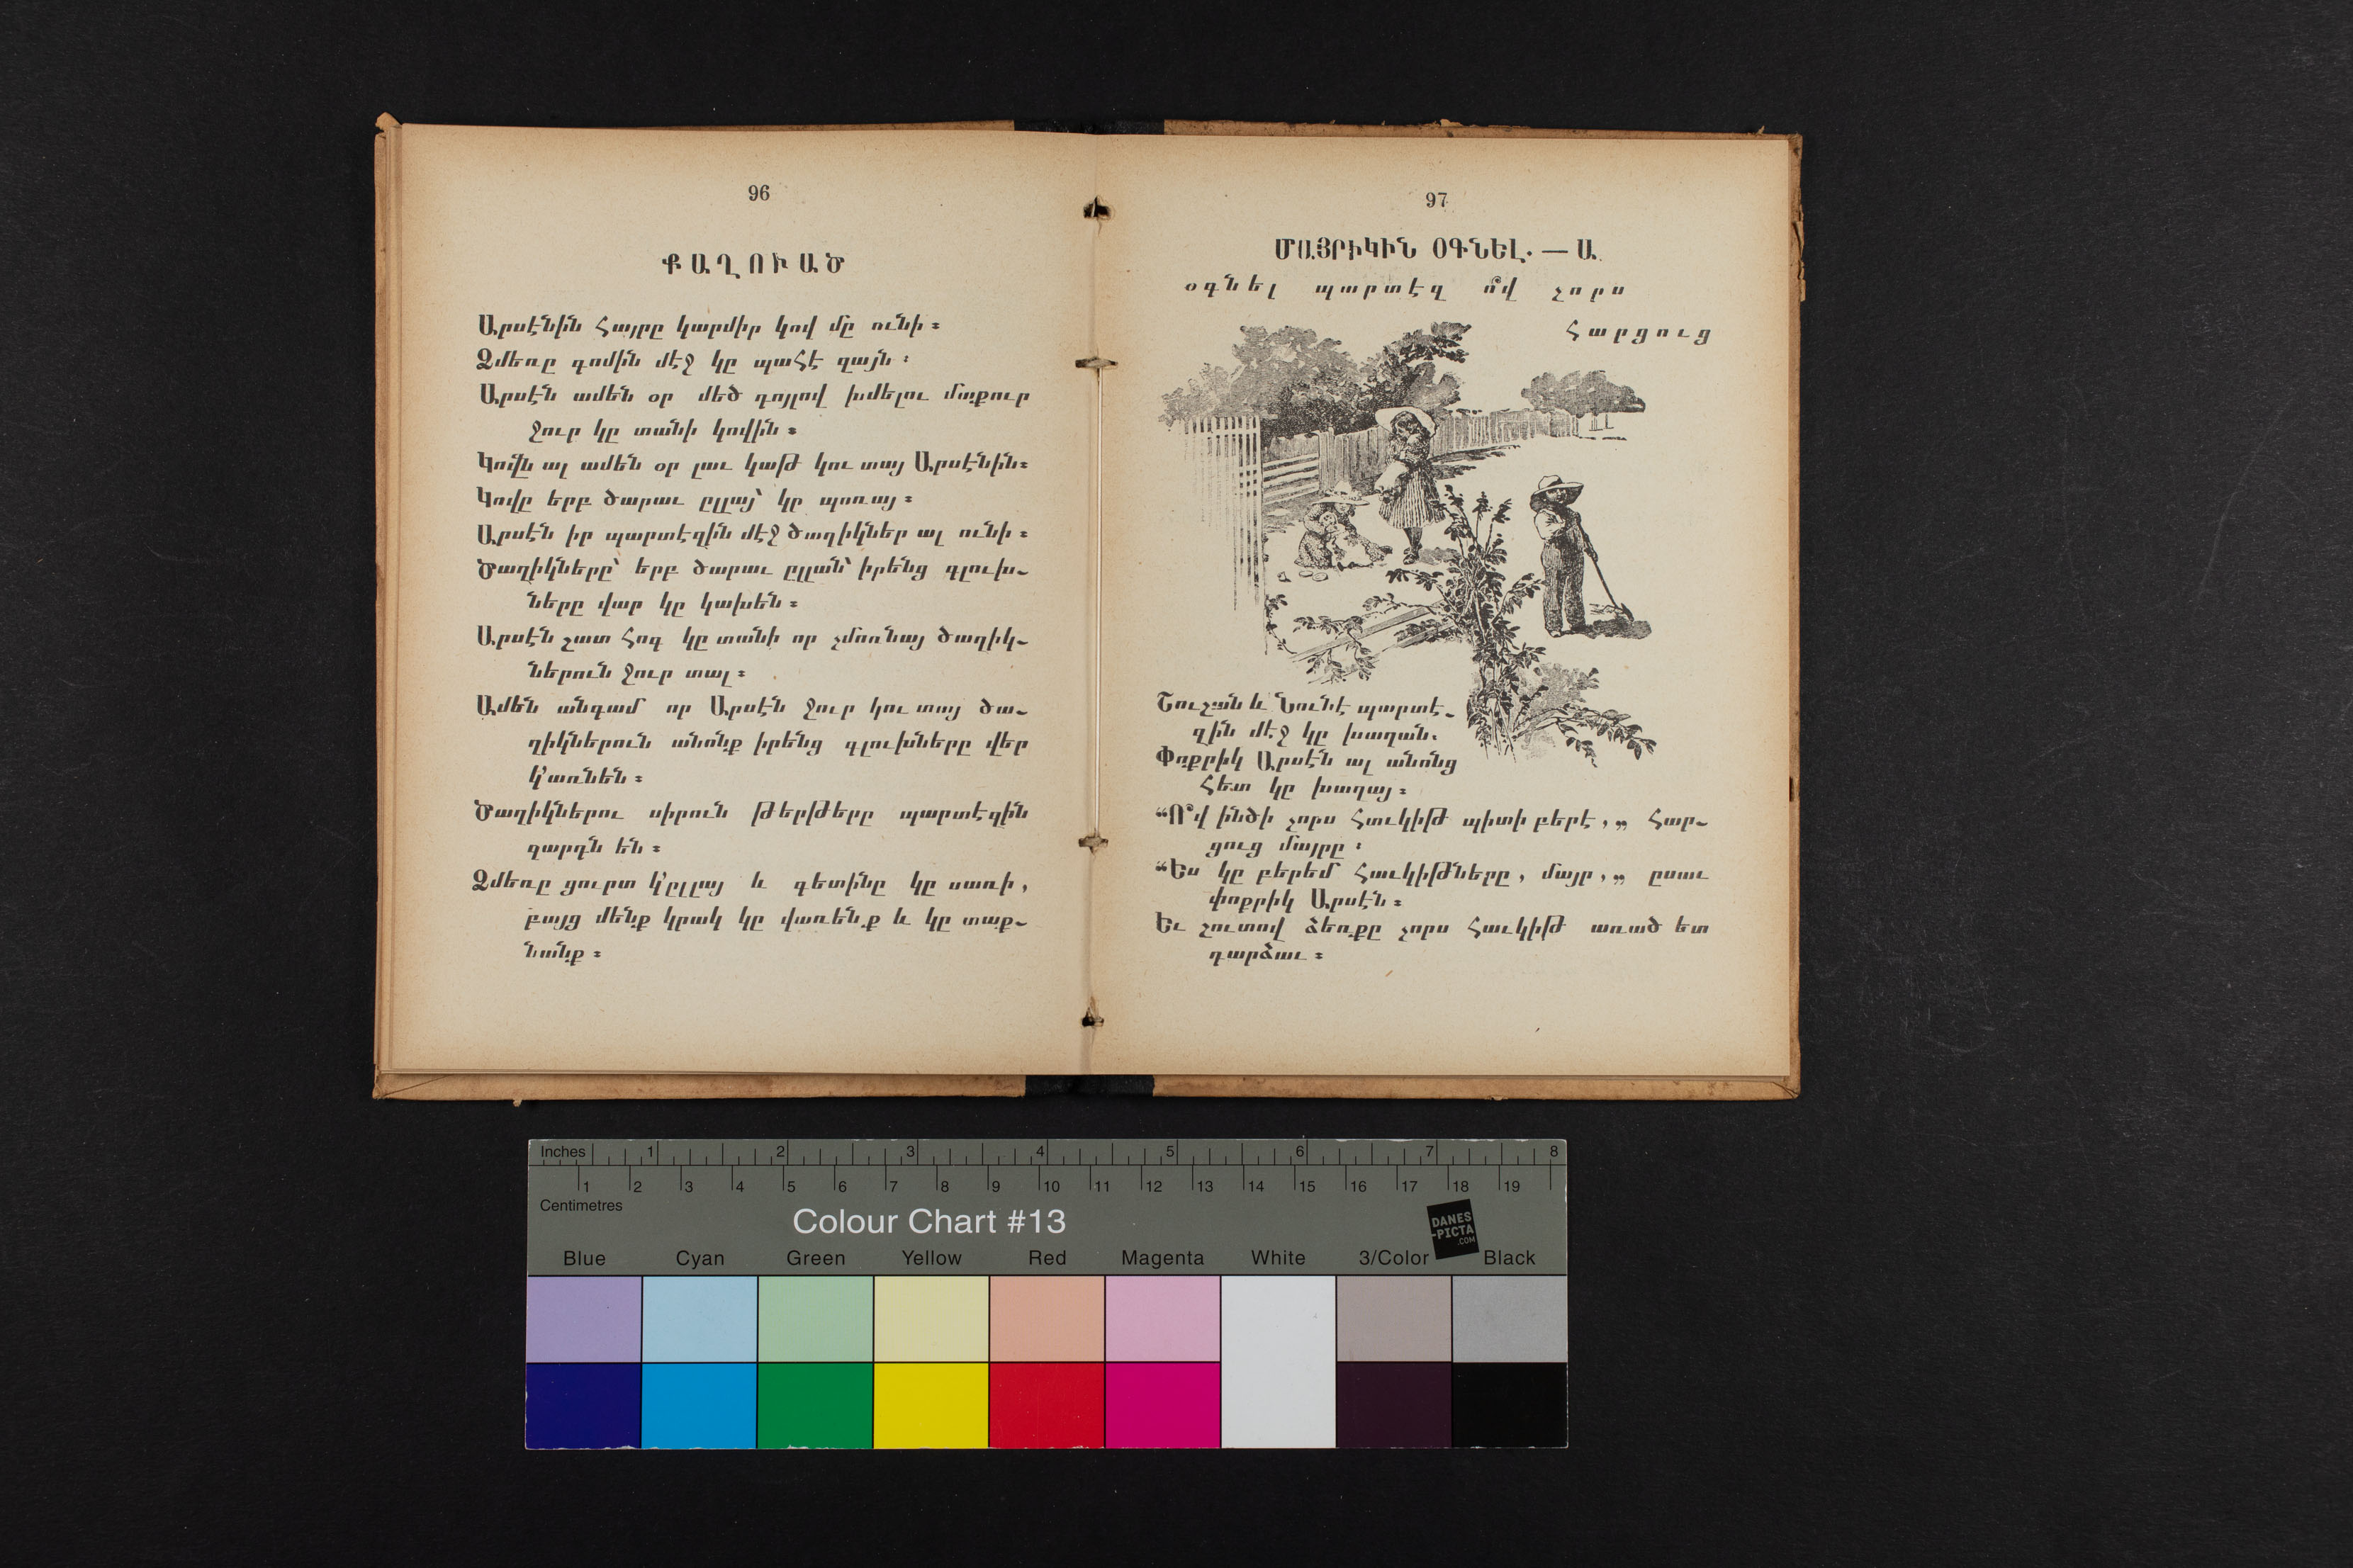 96
ՔԱՂՈՒԱԾ
Արսէնին հայրը կարմիր կով մը ունի։
Ձմեռը գոմին մէջ կը պահէ զայն։
Արսէն ամեն օր մեծ դոյլով խմելու մաքուր
ջուր կը տանի կովին։
Կովն ալ ամեն օր լաւ կաթ կու տայ Արսէնին։
Կովը երբ ծարաւ ըլլայ՝ կը պոռայ։
Արսէն իր պարտէզին մէջ ծաղիկներ ալ ունի։
Ծաղիկները՝ երբ ծարաւ ըլլան՝ իրենց գլուխ-
ները վար կը կախեն։
Արսէն շատ հոգ կը տանի որ չմոռնայ ծաղիկ-
ներուն ջուր տալ։
Ամեն անգամ որ Արսէն ջուր կու տայ ծա-
ղիկներուն անոնք իրենց գլուխները վեր
կ՚առնեն։
Ծաղիկներու սիրուն թերթերը պարտէզին
զարդն են։
Ձմեռը ցուրտ կ՚ըլլայ և գետինը կը սառի,
բայց մենք կրակ կը վառենք և կը տաք-
նանք։
97
ՄԱՅՐԻԿԻՆ ՕԳՆԵԼ.— Ա.
օգնել պարտէզ ո՞վ չորս
հարցուց
Շուշան և Նունէ պարտէ-
զին մէջ կը խաղան.
Փոքրիկ Արսէն ալ անոնց
հետ կը խաղայ։
“Ո՞վ ինծի չորս հաւկիթ պիտի բերէ,„ հար-
ցուց մայրը։
“Ես կը բերեմ հաւկիթները, մայր,„ ըսաւ
փոքրիկ Արսէն։
Եւ շուտով ձեռքը չորս հաւկիթ առած ետ
դարձաւ։
Inches 1 2 3 4 5 6 7 8
1 2 3 4 5 6 7 8 9 10 11 12 13 14 15 16 17 18 19
Centimetres
Colour Chart #13
DANES
-PICTA
.COM
Blue Cyan Green Yellow Red Magenta White 3/Color Black